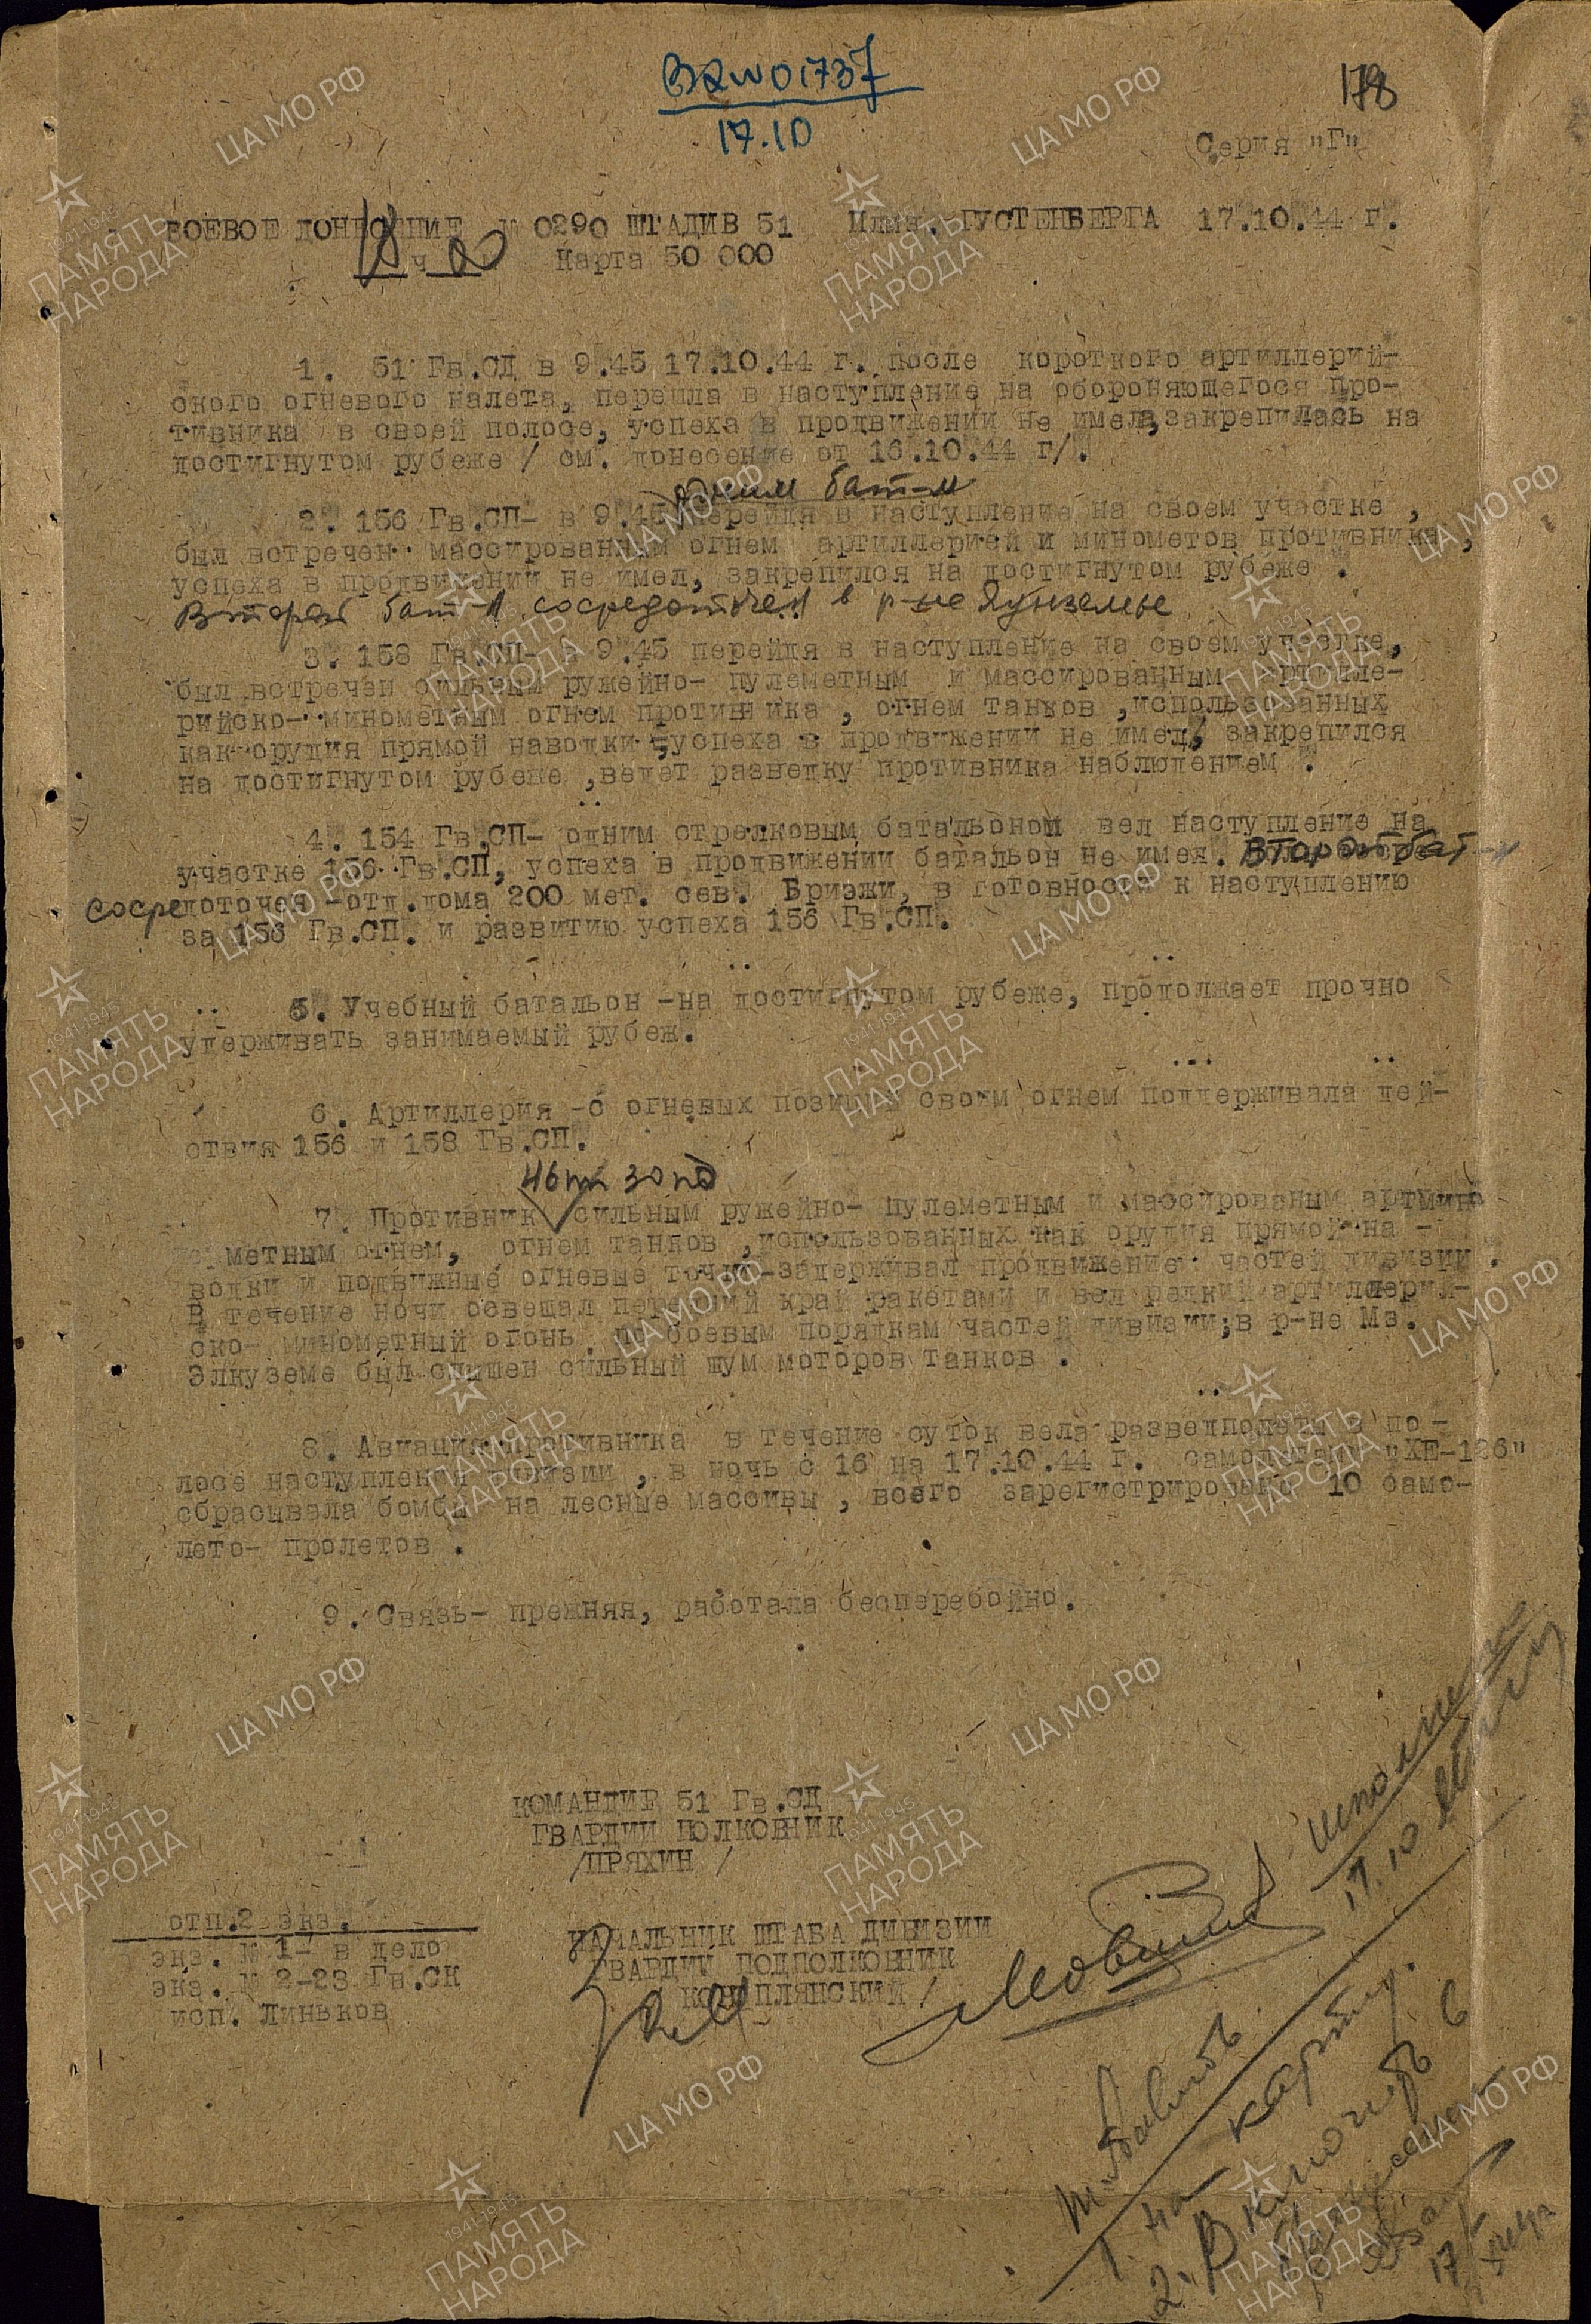 Вх № 01737
17.10
178
Серия "Г"
БОЕВОЕ ДОНЕСЕНИЕ № 0290 ШТАДИВ 51 ГУСТЕНБЕРГА 17.10.44 г.
18 ч 00 Карта 50 000
1. 51 Гв.СД в 9.45 17.10.44 г. после короткого артиллерий-
ского огневого налета, перешла в наступление на обороняющегося про-
тивника в своей полосе, успеха в продвижении не имела, закрепилась на
достигнутом рубеже / см. донесение от 16.10.44 г/.
одним бат-м
2. 156 Гв.СП- в 9.45 перейдя в наступление на своем участке ,
был встречен массированным огнем артиллерией и минометов противника ,
успеха в продвижении не имел, закрепился на достигнутом рубеже .
Второй бат-н сосредоточен в р-не Яунземье
3. 158 Гв.СП- в 9.45 перейдя в наступление на своем участке,
был встречен сильным ружейно- пулеметным и массированным артилле-
рийско- минометным огнем противника , огнем танков ,использованных
как орудия прямой наводки ,успеха в продвижении не имел, закрепился
на достигнутом рубеже ,ведет разведку противника наблюдением .
4. 154 Гв.СП- одним стрелковым батальоном вел наступление на
участке 156 Гв.СП, успеха в продвижении батальон не имел. Второй бат-н
сосредоточен -отд.дома 200 мет. сев. Бризжи, в готовности к наступлению
за 156 Гв.СП. и развитию успеха 156 Гв.СП.
5. Учебный батальон -на достигнутом рубеже, продолжает прочно
удерживать занимаемый рубеж.
6. Артиллерия -с огневых позиций своим огнем поддерживала дей-
ствия 156 и 158 Гв.СП.
7. Противник сильным ружейно- пулеметным и массированым артмино
метным огнем, огнем танков ,использованных как орудия прямой на -
водки и подвижные огневые точки-задерживал продвижение частей дивизии .
В течение ночи освещал передний край ракетами и вел редкий артиллерий-
ско- минометный огонь по боевым порядкам частей дивизии;в р-не Мз.
Элкуземе был слышен сильный шум моторов танков .
8. Авиация противника в течение суток вела разведполеты в по -
лосе наступления дивизии , в ночь с 16 на 17.10.44 г. самолетами "ХЕ-126"
сбрасывала бомбы на лесные массивы , всего зарегистрировано 10 само-
лето- пролетов .
9. Связь- прежняя, работала бесперебойно.
КОМАНДИР 51 Гв.СД
ГВАРДИИ ПОЛКОВНИК
/ПРЯХИН /
НАЧАЛЬНИК ШТАБА ДИВИЗИИ
ГВАРДИИ ПОДПОЛКОВНИК
отп.2 экз.
экз. № 1- в дело
экз. № 2-23 Гв.СК
исп. Линьков
17.10
1. на карту.
2.
17
ЦА МО РФ
1941-1945
ПАМЯТЬ
НАРОДА